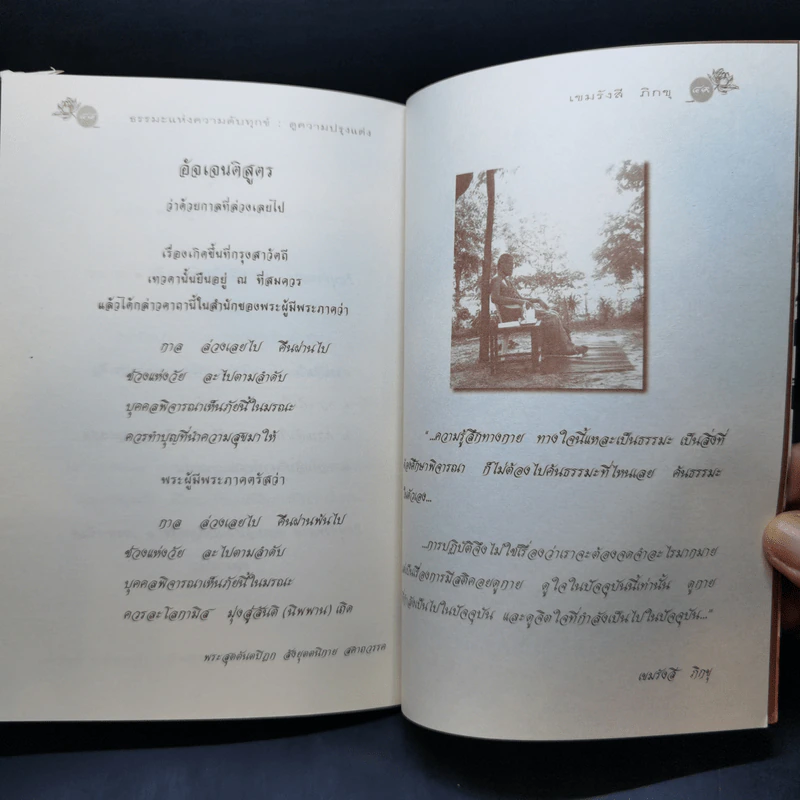 ๔๘
ธรรมะแห่งความดับทุกข์ : ดูความปรุงแต่ง
อัจเจนติสูตร
ว่าด้วยกาลที่ล่วงเลยไป
เรื่องเกิดขึ้นที่กรุงสาวัตถี
เทวดานั้นยืนอยู่ ณ ที่สมควร
แล้วได้กล่าวคาถานี้ในสำนักของพระผู้มีพระภาคว่า
กาล ล่วงเลยไป คืนผ่านไป
ช่วงแห่งวัย ละไปตามลำดับ
บุคคลพิจารณาเห็นภัยนี้ในมรณะ
ควรทำบุญที่นำความสุขมาให้
พระผู้มีพระภาคตรัสว่า
กาล ล่วงเลยไป คืนผ่านพ้นไป
ช่วงแห่งวัย ละไปตามลำดับ
บุคคลพิจารณาเห็นภัยนี้ในมรณะ
ควรละโลกามิส มุ่งสู่สันติ (นิพพาน) เถิด
พระสุตตันตปิฎก สังยุตตนิกาย สคาถวรรค
เขมรังสี ภิกขุ ๔๙
"...ความรู้สึกทางกาย ทางใจนี้แหละเป็นธรรมะ เป็นสิ่งที่
ศึกษาพิจารณา ก็ไม่ต้องไปค้นธรรมะที่ไหนเลย ค้นธรรมะ
ในตัวเอง...
...การปฏิบัติจึงไม่ใช่เรื่องว่าเราจะต้องจดจำอะไรมากมาย
เป็นเรื่องการมีสติคอยดูกาย ดูใจในปัจจุบันนี้เท่านั้น ดูกาย
กำลังเป็นไปในปัจจุบัน และดูจิตใจที่กำลังเป็นไปในปัจจุบัน..."
เขมรังสี ภิกขุ